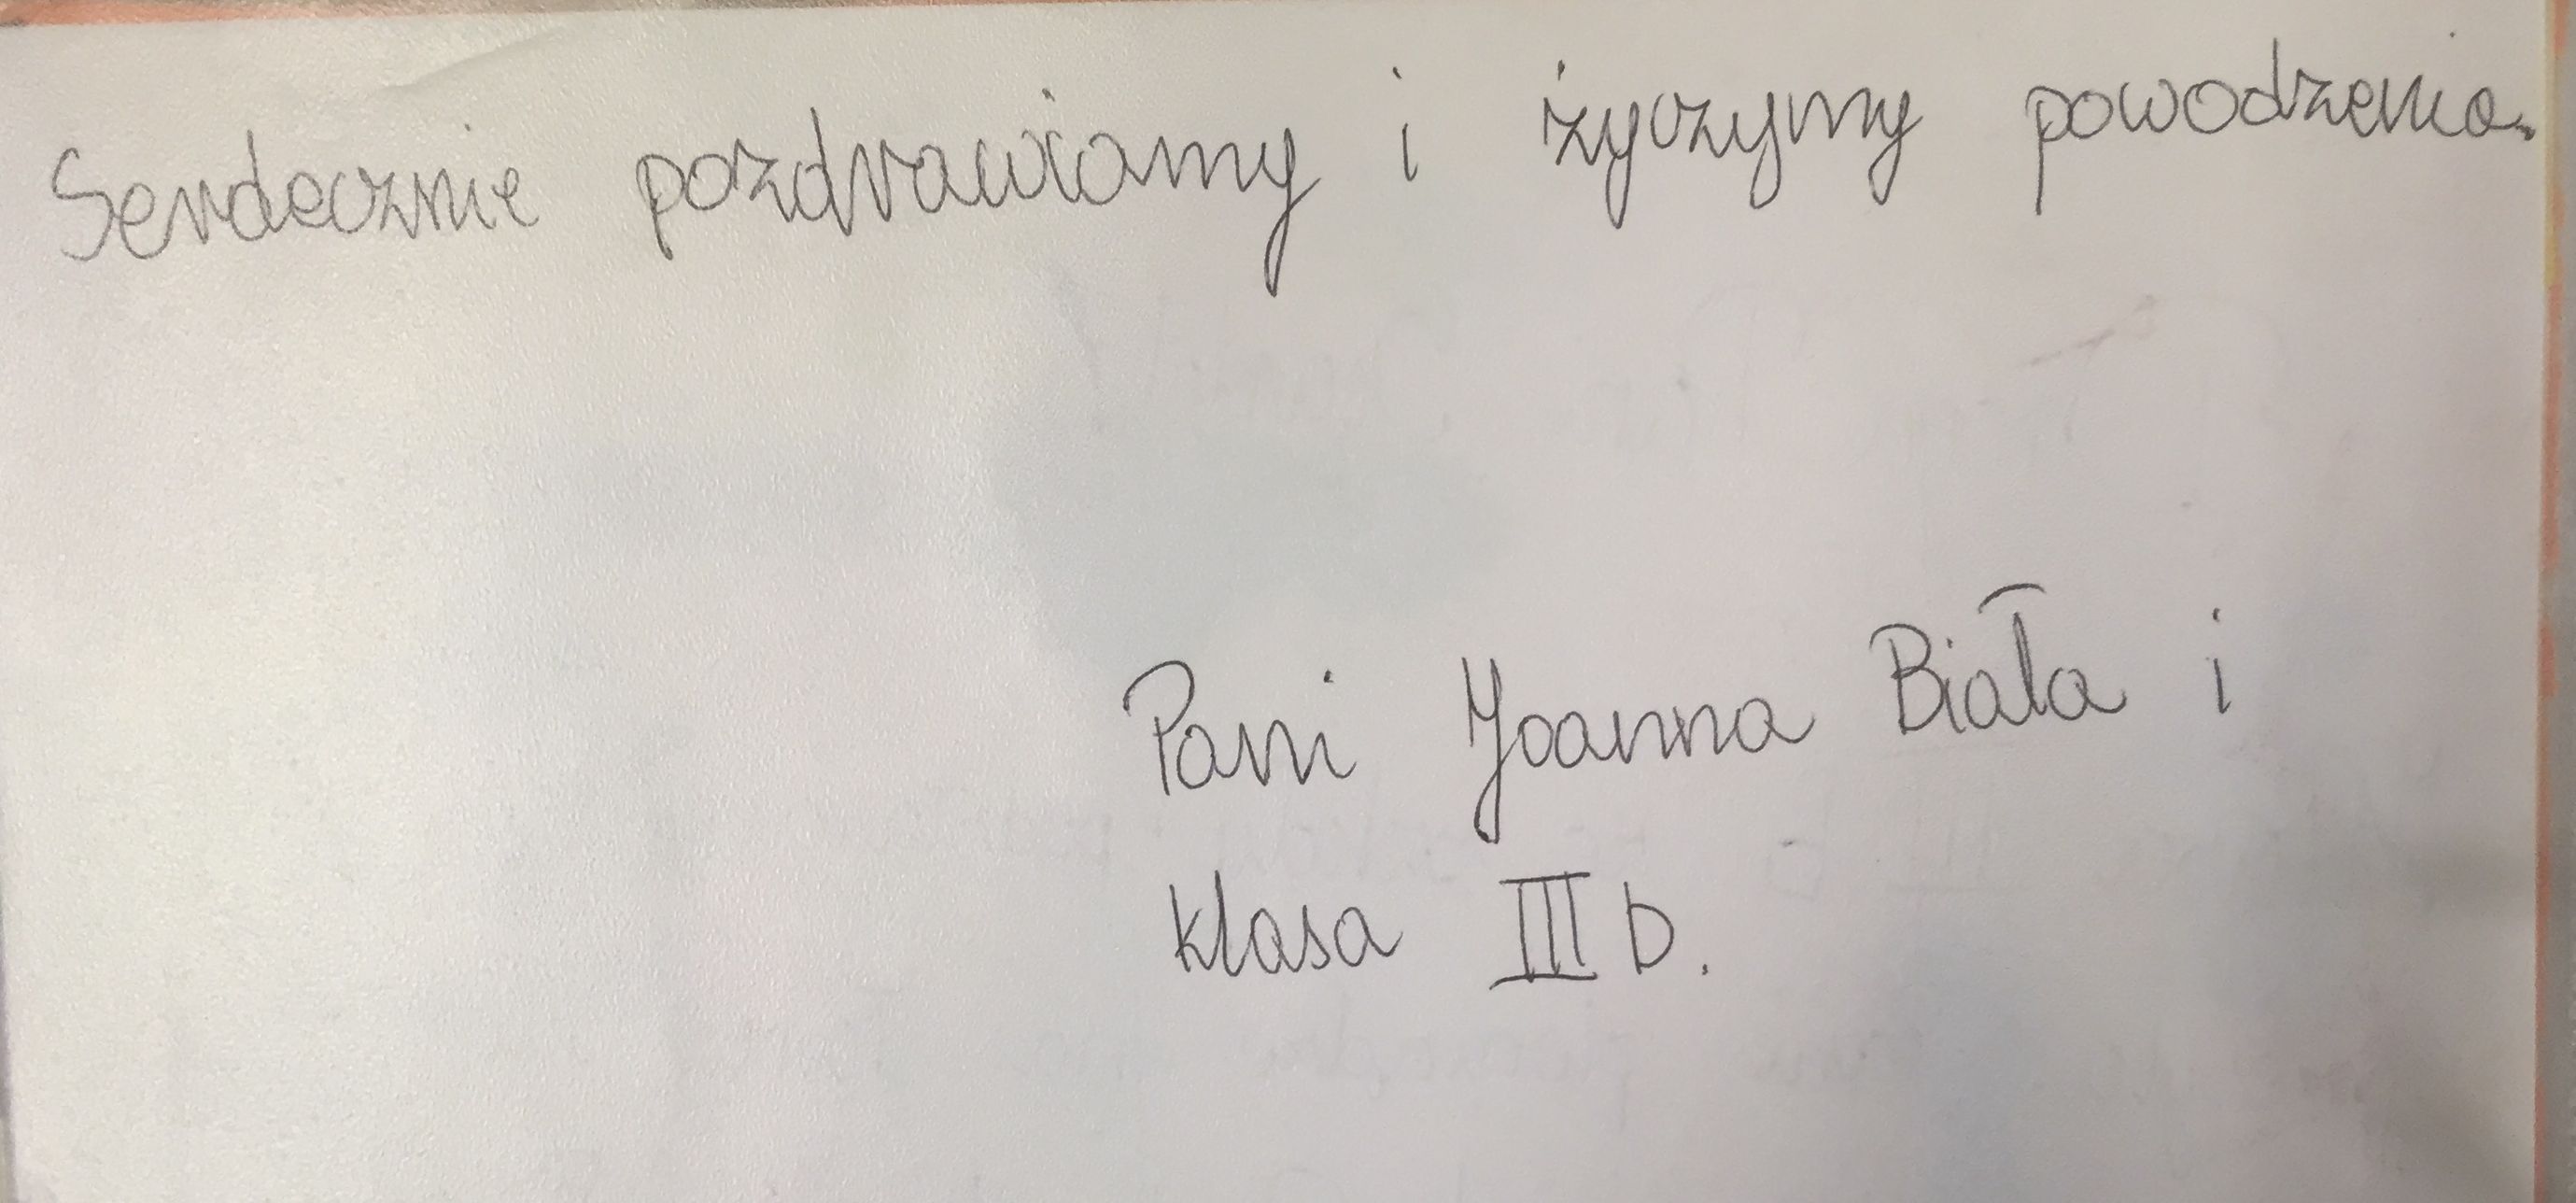 Serdecznie pozdrawiamy i życzymy powodzenia.
Pani Joanna Biała i
klasa III b.